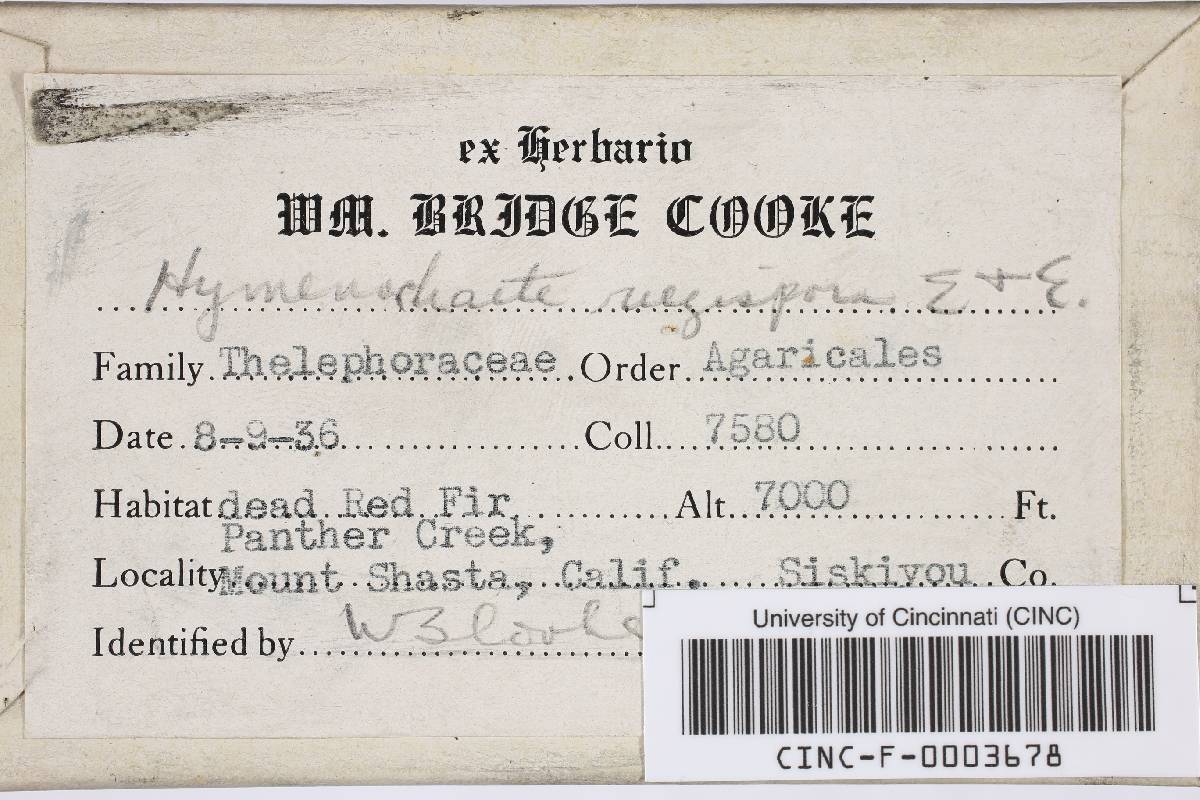 ex Herbario
WM. BRIDGE COOKE
Hymenochaete rugispora E + E.
Family Thelephoraceae Order Agaricales
Date 8-9-36 Coll. 7580
Habitat dead Red Fir Alt. 7000 Ft.
Panther Creek,
Locality Mount Shasta, Calif. Siskiyou Co.
Identified by W B Cooke
University of Cincinnati (CINC)
CINC-F-0003678